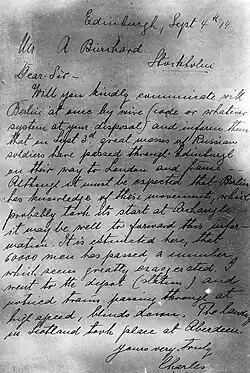 Edinburgh, Sept 4th 14
Mr. A Burchard.
Stockholm
Dear Sir -
Will you kindly communicate with
Berlin at once by wire (code or whatever
system at your disposal) and inform them
that on Sept 3rd great masses of Russian
soldiers have passed through Edinburgh
on their way to London and France.
Although it must be expected that Berlin
has knowledge of these movements, which
probably took its start at Archangle
it may be well to forward this infor-
mation. It is estimated here, that
60000 men has passed a number
which seems greatly exaggerated. I
went to the depot (station) and
noticed trains passing through at
high speed, blinds down. The landing
in Scotland took place at Aberdeen.
Yours very truly
Charles